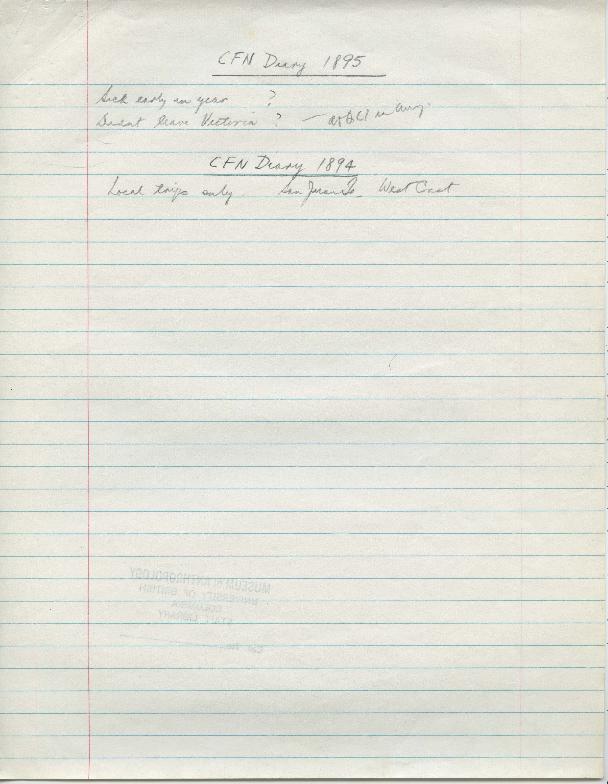 CFN Diary 1895
Sick early in year ?
Doesnt leave Victoria ? — at QCI in Aug.
CFN Diary 1894
Local trips only. San Juan Is. West Cost
MUSEUM OF ANTHROPOLOGY
UNIVERSITY OF BRITISH
COLUMBIA
STAFF LIBRARY